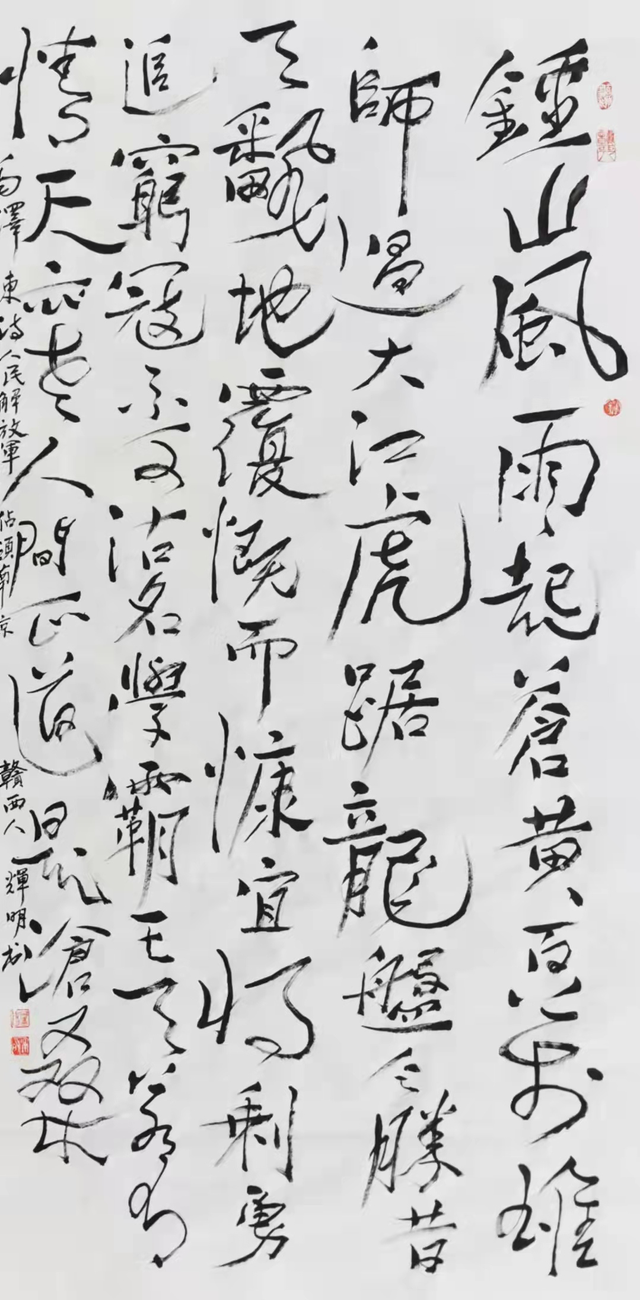 鍾山風雨起蒼黃百万雄
師過大江虎踞龍盤今勝昔
天飜地覆慨而慷宜將剩勇
追窮寇不可沽名學霸王天若有
情天亦老人間正道是滄桑
毛澤東詩人民解放軍佔領南京
贛西人輝明